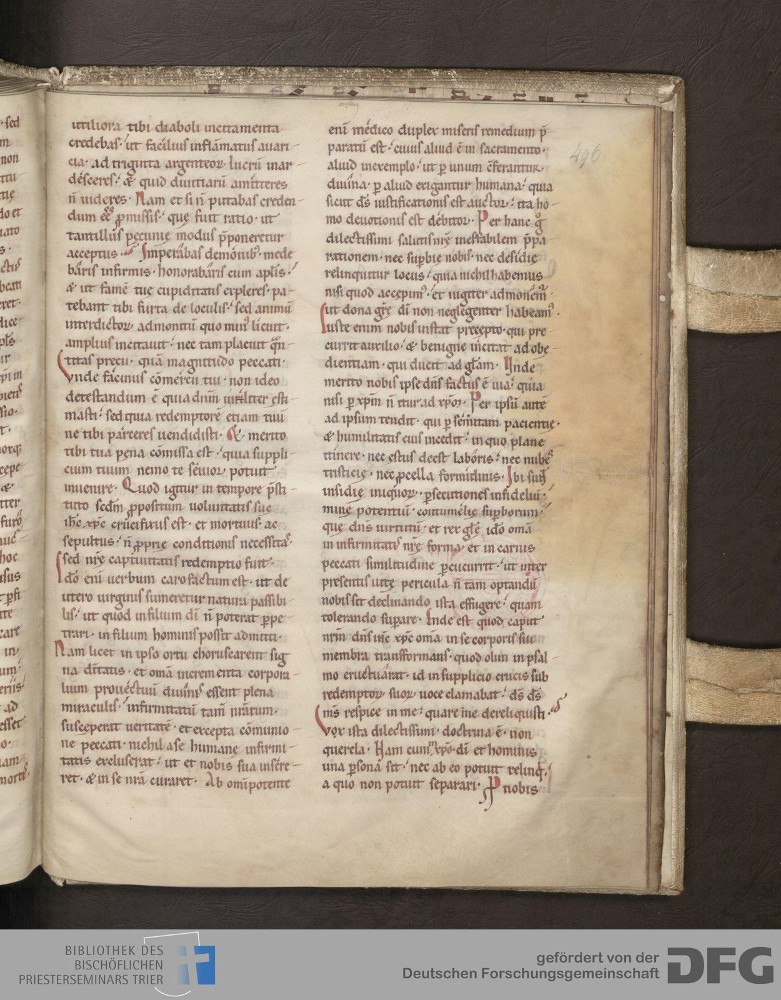 uttiliora tibi diaboli incitamenta
credebas · ut facilius inflāmatus auari-
cia · ad triginta argenteoꝝ lucrū inar-
desceres · & quid diuitiarū amitteres
n̄ uideres · Nam et si n̄ putabas creden-
dum ·
tantillus pecunie modus p̄poneretur
acceptus · Imperabas demonib; · mede-
baris infirmis · honorabaris cum aplīs ·
& ut famē tue cupiditatis expleres · pa-
tebant tibi furta de loculis · sed animū
interdictoꝝ admonuit quo min; licuit ·
amplius incitauit · nec tam placuit qn̄-
titas precii · quā magnitudo peccati ·
Vnde facinus cōmercii tui · non ideo
detestandum ē quia dnm̄ uiliter esti-
masti · sed quia redemptorē etiam tuū
ne tibi parceres uendidisti · & merito
tibi tua pena cōmissa est · quia suppli-
cium tuum nemo te seuior potuit
inuenire · Quod igitur in tempore p̄sti-
tuto scdm̄ p̄positum uoluntatis sue
ihc̄ xp̄c crucifixus est · et mortuus · ac
sepultus · n̄ p̄prie conditionis necessitas ·
sed nr̄e captiuitatis redemptio fuit ·
Ido eni uerbum caro factum est · ut de
utero uirginis sumeretur natura passibi-
lis · ut quod in filium di n̄ poterat ꝑpe-
trari · in filium hominis possit admitti ·
Nam licet in ipso ortu choruscarent sig-
na diītatis · et omā incrementa corpora-
lium prouectuū diuinis essent plena
miraculis · infirmitatū tam̄ nrārum
susceperat ueritatē · et excepta cōmunio-
ne peccati · nichil a se humane infirmi-
tatis excluserat · ut et nobis sua insere-
ret · & in se nrā curaret · Ab omīpotente
496
eni medico duplex miseris remedium p̄-
paratū est · cuius aliud ē in sacramento ·
aliud in exemplo · ut ꝑ unum cōferantur
diuina · ꝑ aliud exigantur humana · quia
sicut ds̄ iustificationis est auctor · ita ho-
mo deuotionis est debitor · Per hanc g̊
dilectissimi salutis nr̄e ineffabilem p̄pa-
rationem · nec supbie nobis · nec desidie
relinquitur locus · quia nichil habemus
nisi quod accepim; · et iugiter admonem̄
ut dona gr̄e di non neglegenter habeam; ·
Iuste enim nobis instat precepto · qui pre-
currit auxilio · & benigne incitat ad obe-
dientiam · qui ducit ad glam · Vnde
merito nobis ipse dn̄s factus ē uia · quia
nisi ꝑ xpm̄ n̄ itur ad xpm̄ · Per ipsū autē
ad ipsum tendit · qui ꝑ semitam pacientie
& humilitatis eius incedit · in quo plane
itinere · nec estus deest laboris · nec nubes
tristicie · nec procella formidinis · Ibi sun̄
insidie iniquoꝝ · ꝑsecutiones infidelium ·
mine potentiū · contumelie supborum ·
que dn̄s uirtutū · et rex gl̄e · ido omā
in infirmitatis nr̄e forma · et in carnis
peccati similitudine ꝑcucurrit · ut inter
presentis uite pericula n̄ tam optandū
nobis sit declinando ista effugere · quam
tolerando supare · Inde est quod caput
nrm̄ dn̄s ihc xp̄c omā in se corporis sui
membra transformans · quod olim in psal-
mo eructuarat · id in supplicio crucis sub
redemptoꝝ suoꝝ uoce clamabat · ds̄ ds̄
ms̄ respice in me · quare me dereliquisti ·
Vox ista dilectissimi · doctrina ē · non
querela · Nam cum in xpo di et hominis
una ꝑsona sit · nec ab eo potuit relinq̄ ·
a quo non potuit separari · P nobis
BIBLIOTHEK DES
BISCHÖFLICHEN
PRIESTERSEMINARS TRIER
gefördert von der
Deutschen Forschungsgemeinschaft
DFG